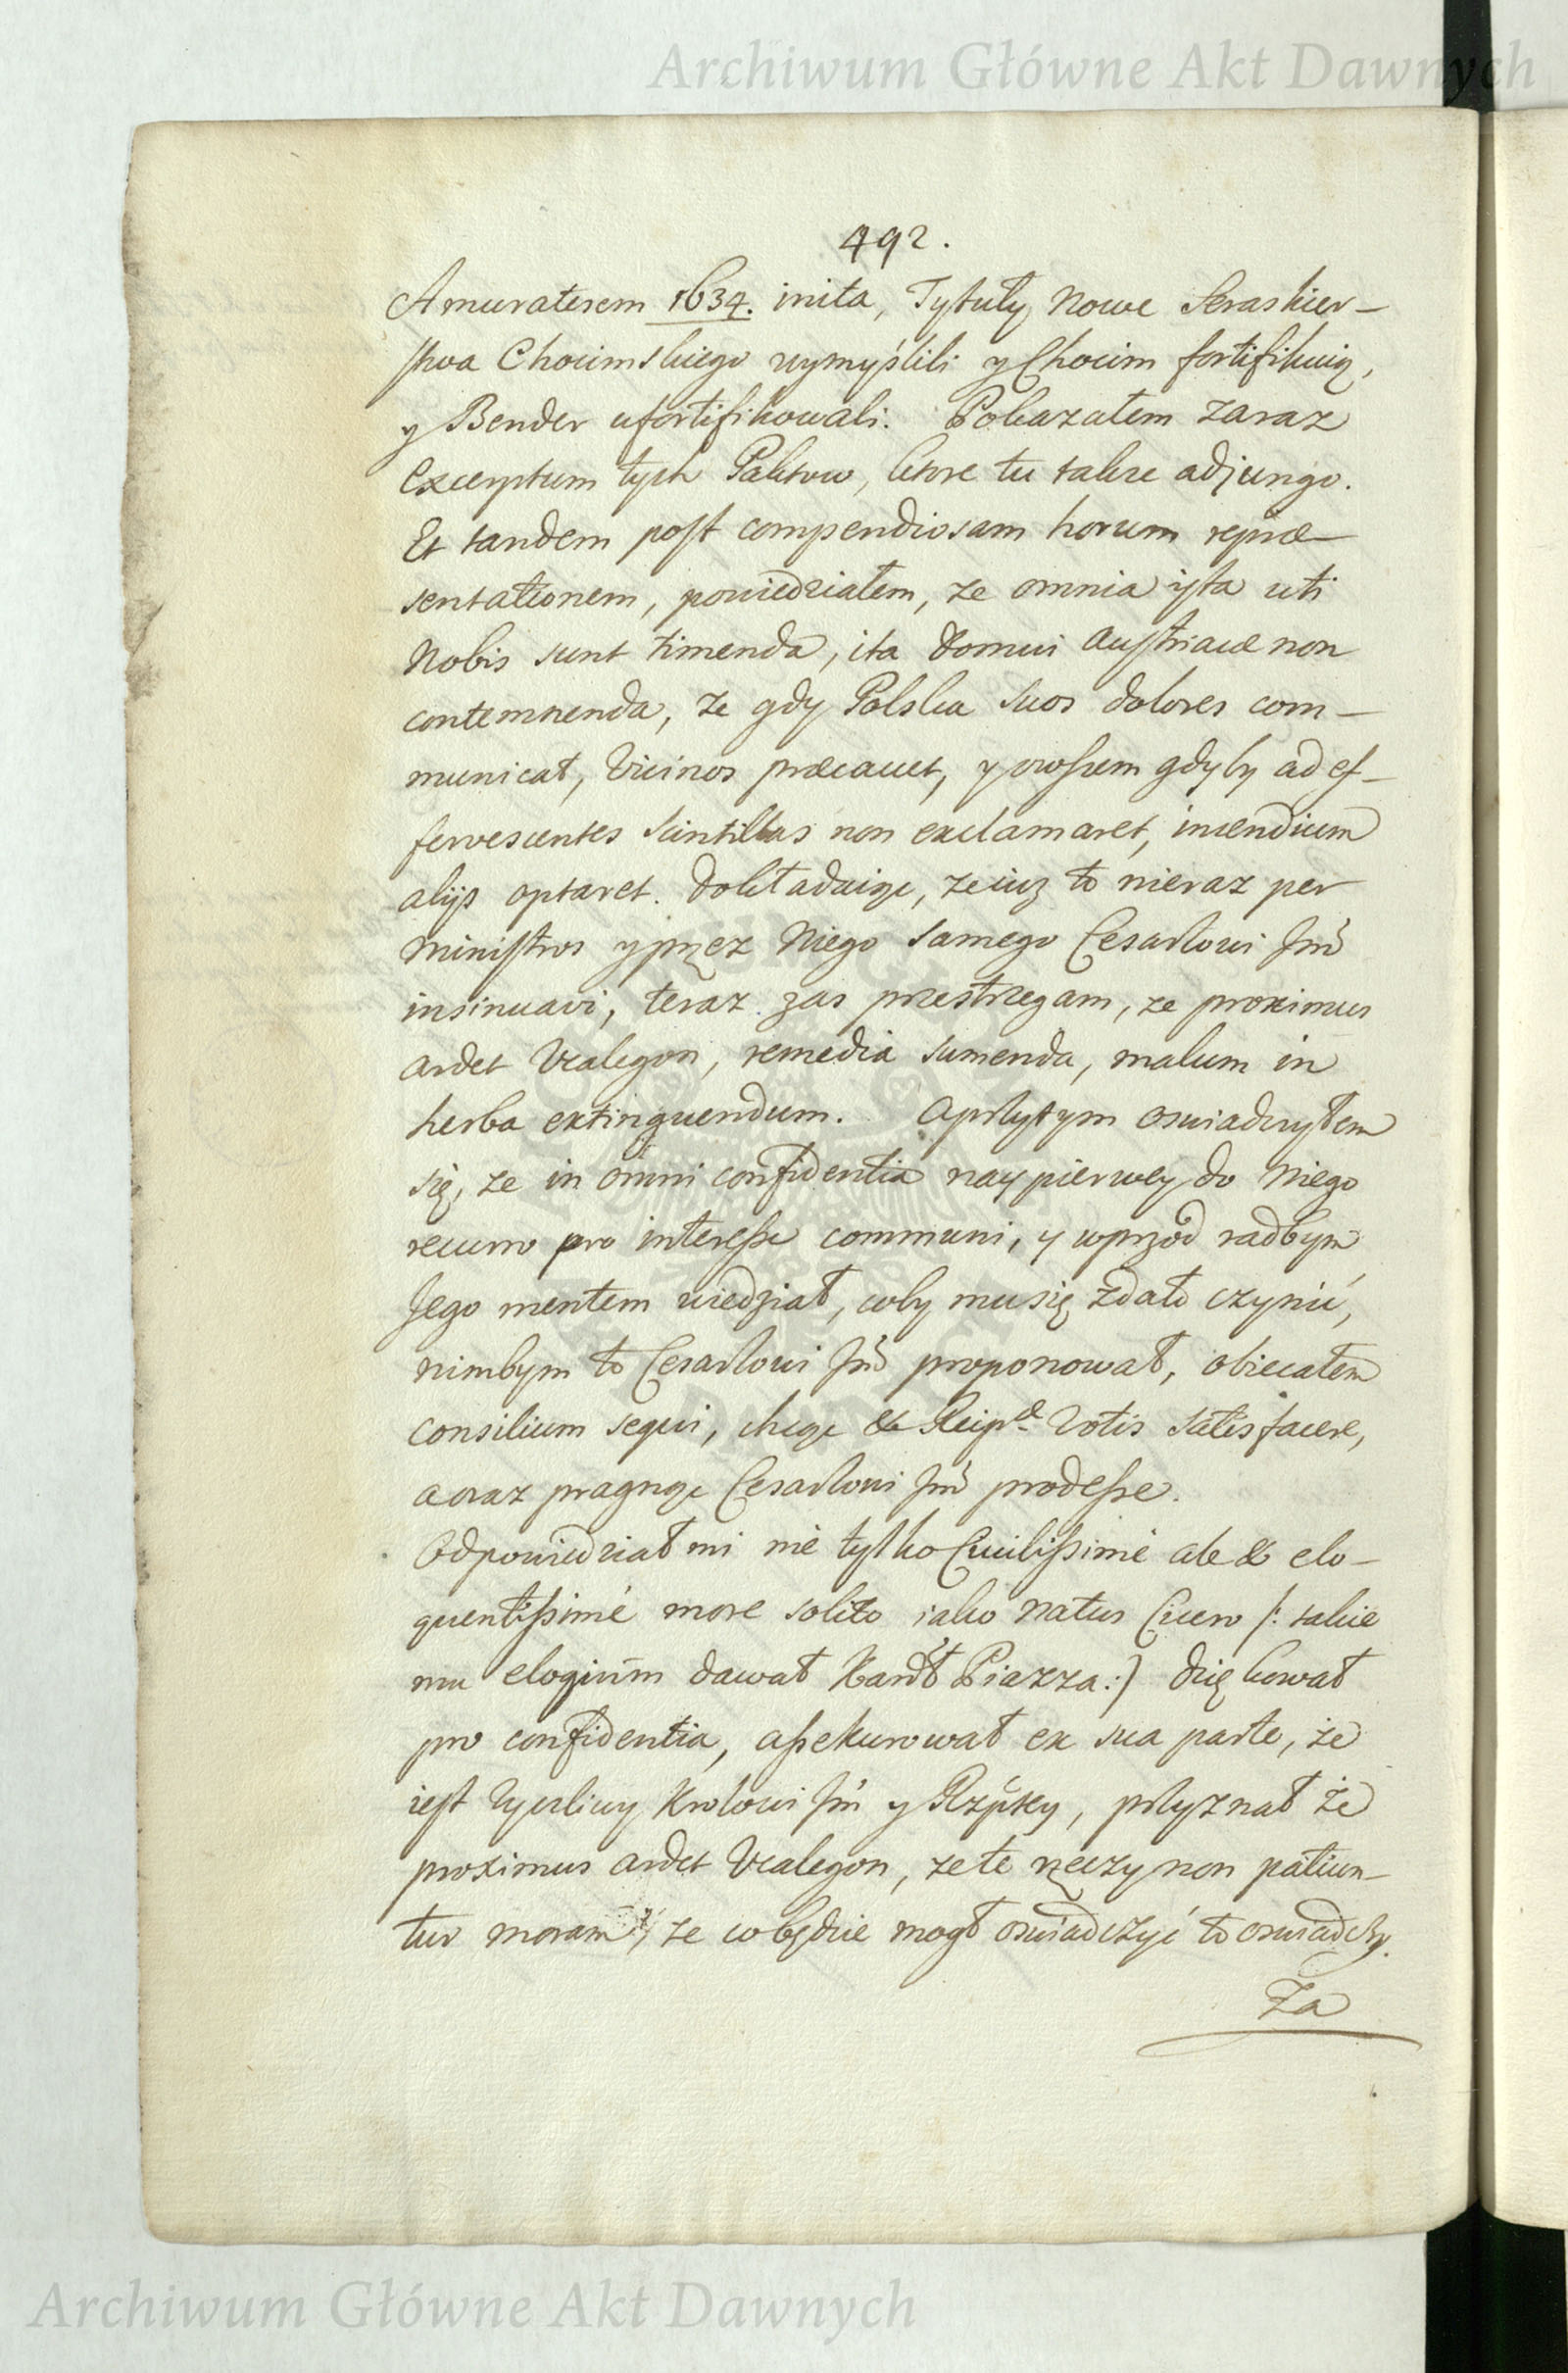 Archiwum Główne Akt Dawnych
492.
Amuratesem 1634. inita, Tytuły Nowe Seraskier-
stwa Chocimskiego wymyślili y Chocim fortifikuią,
y Bender ufortifikowali. Pokazałem zaraz
Excerptum tych Paktow, ktore tu takze adjungo.
Et tandem post compendiosam horum repræ-
sentationem, powiedziałem, ze omnia ista uti
Nobis sunt timenda, ita Domui Austriacæ non
contemnenda, ze gdy Polska suos dolores com-
municat, Vicinos præcavet, y owszem gdyby ad ef-
fervescentes scintillas non exclamaret, incendium
alijs optaret. Dokładaiąc, ze iuz to nieraz per
Ministros y przez Niego samego Cesarzowi Jmć
insinuavi, teraz zas przestrzegam, ze proximus
ardet Vcalegon, remedia sumenda, malum in
herba extinguendum. A przytym oswiadczyłem
się, ze in omni confidentia naypierwey do Niego
recurro pro interesse communi, y wprzód radbym
Jego mentem wiedział, coby mu się zdało czynić,
nimbym to Cesarzowi Jmć proponował, obiecałem
consilium sequi, chcąc & Reipæ Votis satisfacere,
a oraz pragnąc Cesarzowi Jmć prodesse.
Odpowiedział mi nie tylko Civilissimè ale & elo-
quentissimè more solito iako natus Cicero /: takie
mu elogium dawał Kardł Piazza :/ dziękował
pro confidentia, assekurował ex sua parte, że
iest życzliwy Krolowi Jmć y Rzptey, przyznał że
proximus ardet Vcalegon, ze te rzeczy non patiun-
tur moram, ze co będzie mogł oswiadczyć to oswiadczy.
Za
Archiwum Główne Akt Dawnych